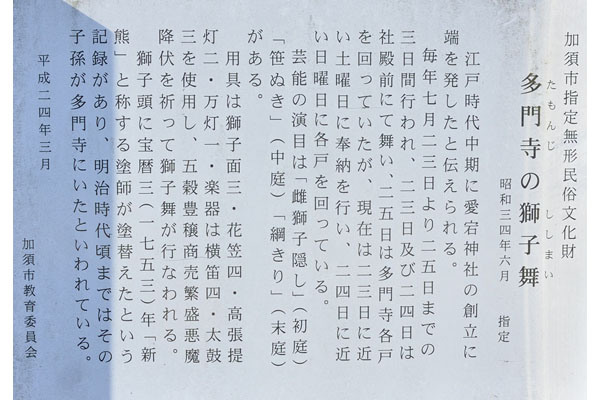 加須市指定無形民俗文化財
たもんじ ししまい
多門寺の獅子舞
昭和三四年六月 指定
江戸時代中期に愛宕神社の創立に
端を発したと伝えられる。
毎年七月二三日より二五日までの
三日間行われ、二三日及び二四日は
社殿前にて舞い、二五日は多門寺各戸
を回っていたが、現在は二三日に近
い土曜日に奉納を行い、二四日に近
い日曜日に各戸を回っている。
芸能の演目は「雌獅子隠し」(初庭)
「笹ぬき」(中庭)「綱きり」(末庭)
がある。
用具は獅子面三・花笠四・高張提
灯二・万灯一・楽器は横笛四・太鼓
三を使用し、五穀豊穣商売繁盛悪魔
降伏を祈って獅子舞が行なわれる。
獅子頭に宝暦三(一七五三)年「新
熊」と称する塗師が塗替えたという
記録があり、明治時代頃まではその
子孫が多門寺にいたといわれている。
平成二四年三月
加須市教育委員会